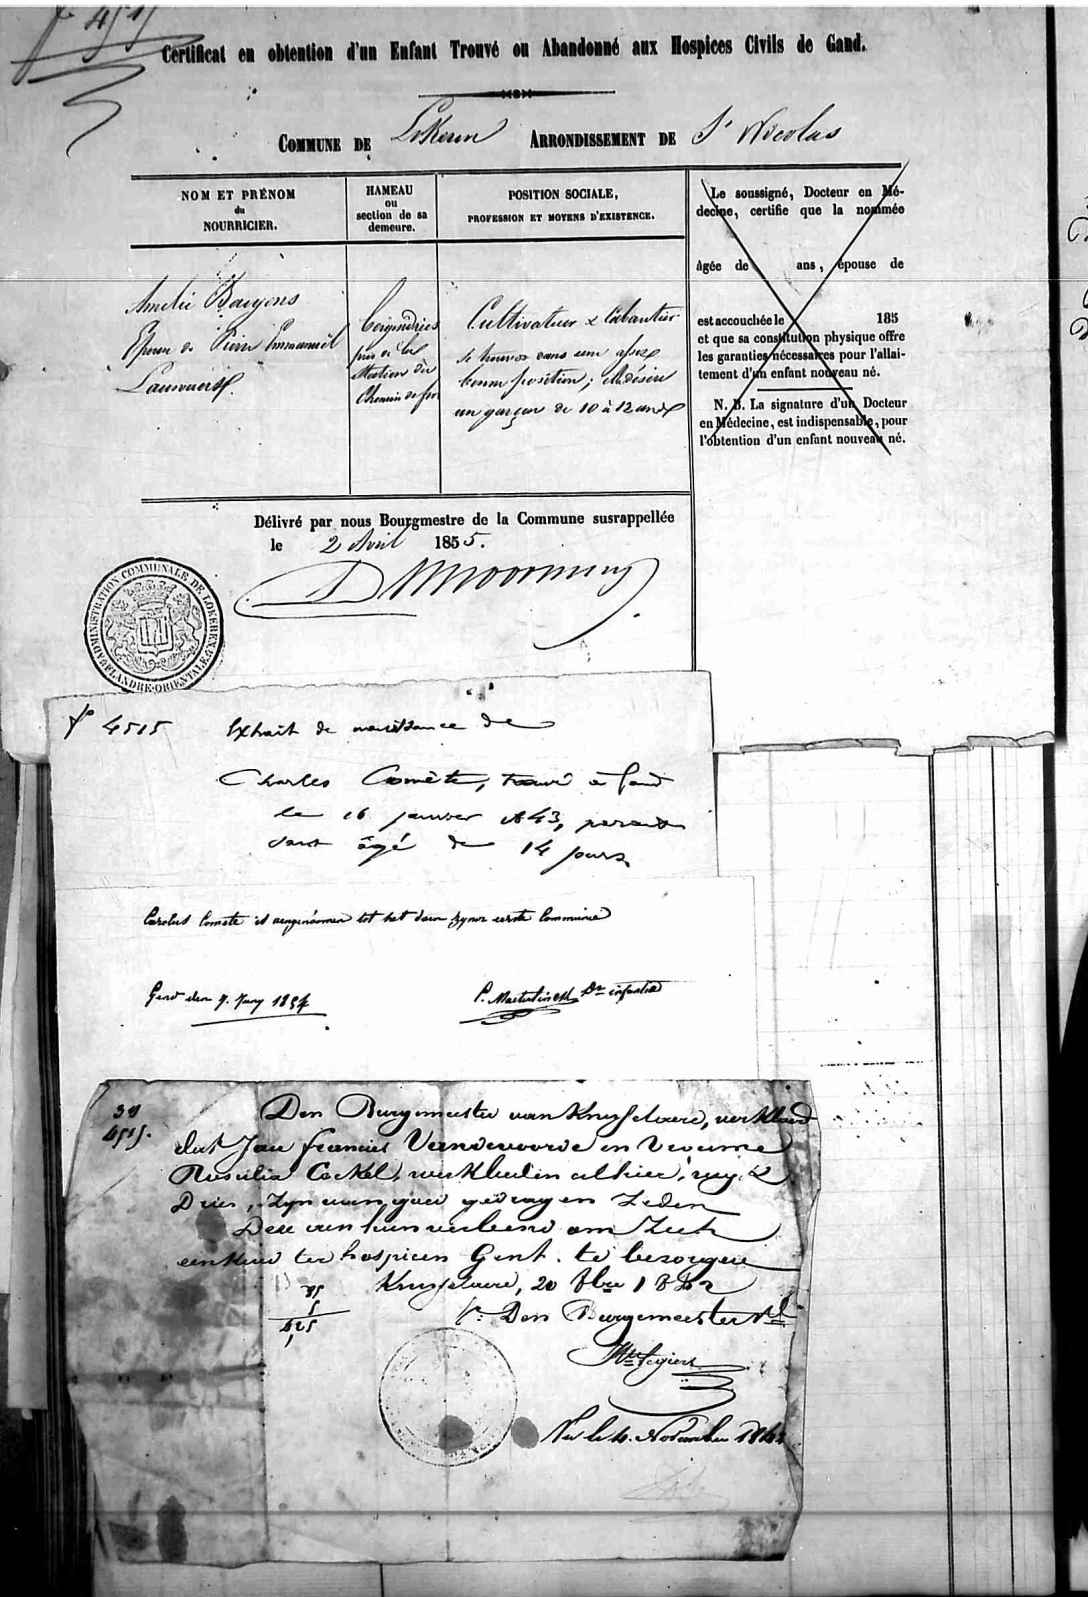 fo 4515
Certificat en obtention d'un Enfant Trouvé ou Abandonné aux Hospices Civils de Gand.
COMMUNE DE Lokeren ARRONDISSEMENT DE St Nicolas
NOM ET PRÉNOM
du
NOURRICIER.
HAMEAU
ou
section de sa
demeure.
POSITION SOCIALE,
PROFESSION ET MOYENS D'EXISTENCE.
Amelie
Epouse de Pierre Emmanuel
près de la
Station du
Chemin de fer
Cultivateur & Cabaretier
se trouve dans une assez
bonne position; & désire
un garçon de 10 à 12 ans
Le soussigné, Docteur en Mé-
decine, certifie que la nommée
âgée de ans, épouse de
est accouchée le 185
et que sa constitution physique offre
les garanties nécessaires pour l'allai-
tement d'un enfant nouveau né.
N. B. La signature d'un Docteur
en Médecine, est indispensable, pour
l'obtention d'un enfant nouveau né.
Délivré par nous Bourgmestre de la Commune susrappellée
le 2 Avril 1855.
ADMINISTRATION COMMUNALE DE LOKEREN
FLANDRE-ORIENTALE
fo 4515 Extrait de naissance de
Charles Comète, trouvé à Gand
le 16 janvier 1843, parais
sant âgé de 14 jours
Carolus Comete is aengenomen tot het doen zyner eerste Communie
Gend den 7. Juny 1854
39
4515.
Den Burgemeester van Kruyselaere, verklaerd
dat Jan Francies Vandevoorde en Vrouwe
Rosalia Cockel, alhier, wyk
Dries, zyn van goed gedrag en Zeden
om zich
een kind ter hospicen Gent te bezorgen
Kruyselaere, 20 8bre
Den Burgemeester
Vu le 4. Novembre